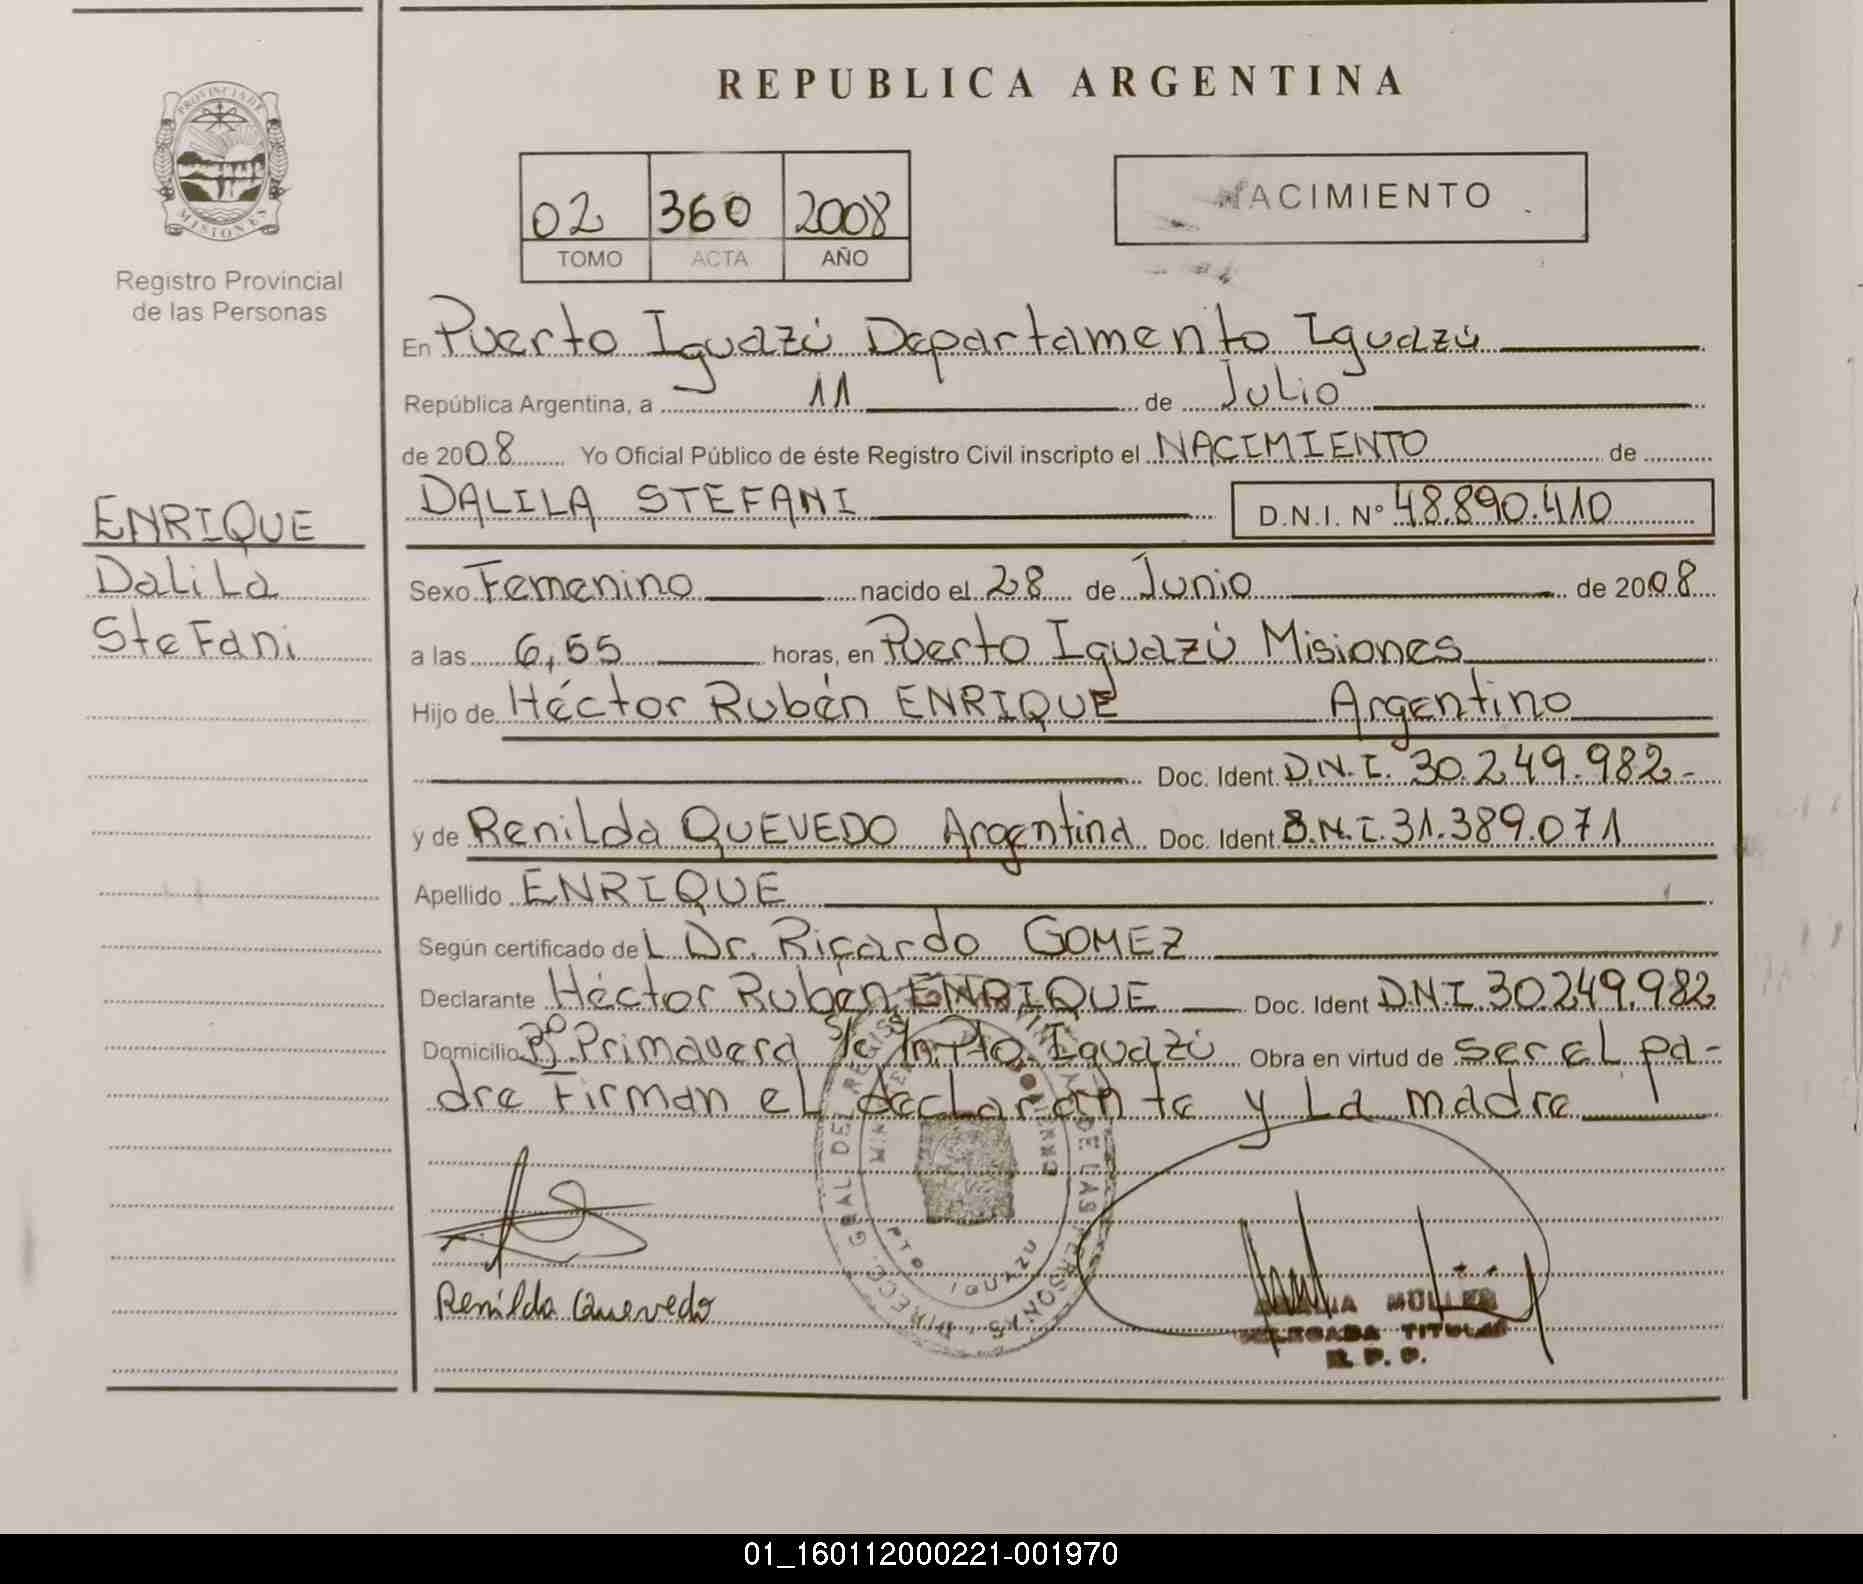 REPUBLICA ARGENTINA
PROVINCIA DE
MISIONES
Registro Provincial
de las Personas
02 360 2008
TOMO ACTA AÑO
NACIMIENTO
En Puerto Iguazú Departamento Iguazú
República Argentina, a 11 de Julio
de 2008 Yo Oficial Público de éste Registro Civil inscripto el NACIMIENTO de
DALILA STEFANI D.N.I. N° 48.890.410
ENRIQUE
Dalila
Stefani
Sexo Femenino nacido el 28 de Junio de 2008
a las 6,55 horas, en Puerto Iguazú Misiones
Hijo de Héctor Rubén ENRIQUE Argentino
Doc. Ident. D.N.I. 30.249.982-
y de Renilda QUEVEDO Argentina Doc. Ident. D.N.I. 31.389.071
Apellido ENRIQUE
Según certificado de L Dr. Ricardo GOMEZ
Declarante Héctor Ruben ENRIQUE Doc. Ident D.N.I. 30249.982
Domicilio Bº Primavera s/c Pto. Iguazú Obra en virtud de ser el pa-
dre Firman el declarante y La madre
Renilda Quevedo
MÜLLER
DELEGADA TITULAR
R. P. P.
PTO IGUAZU
01_160112000221-001970